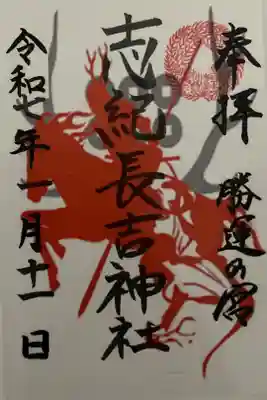 奉拝
勝運の宮
志紀長吉神社
令和七年一月十一日